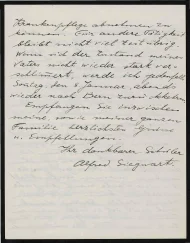 Krankenpflege abnehmen zu
können. Für andere Tätigkeit
bleibt nicht viel Zeit übrig.
Wenn sich der Zustand meines
Vaters nicht wieder stark ver-
schlimmert, werde ich jedenfalls
Sonntag, den 8. Januar, abends
wieder nach Bern zurückkehren.
Empfangen Sie inzwischen
meine, sowie meiner ganzen
Familie herzlichsten Grüsse
u. Empfehlungen.
Ihr dankbarer Schüler
Alfred Siegwart.